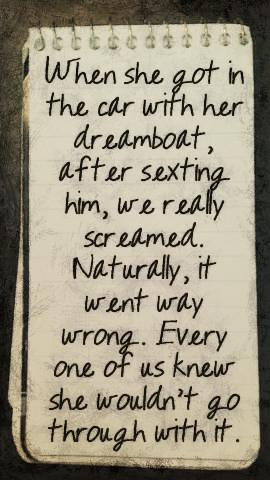 When she got in
the car with her
dreamboat,
after sexting
him, we really
screamed.
Naturally, it
went way
wrong. Every
one of us knew
she wouldn't go
through with it.